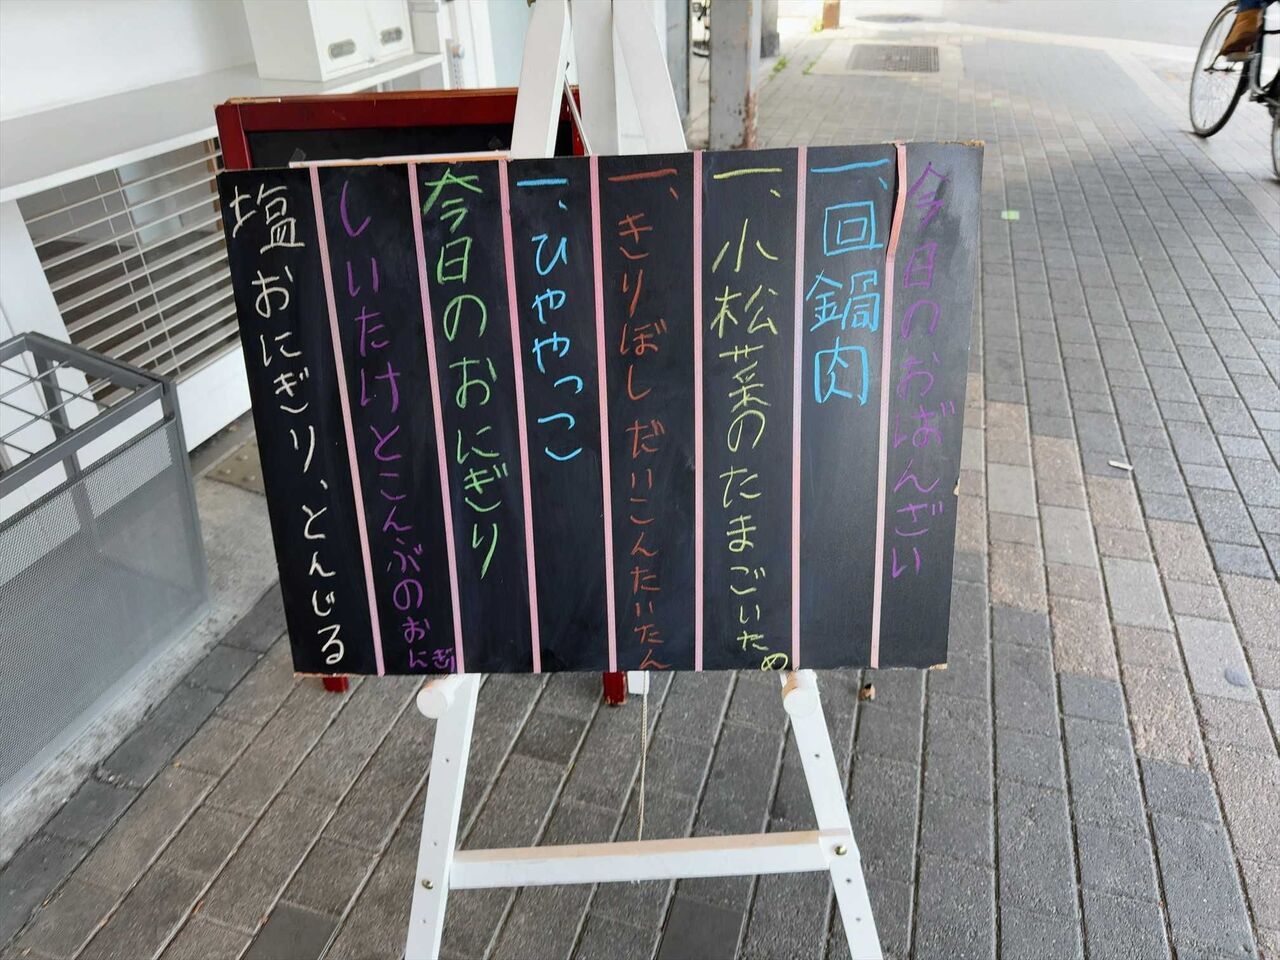 今日のおばんざい
一、回鍋肉
一、小松菜のたまごいため
一、きりぼしだいこんたいたん
一、ひややっこ
今日のおにぎり
しいたけとこんぶのおにぎり
塩おにぎり、とんじる